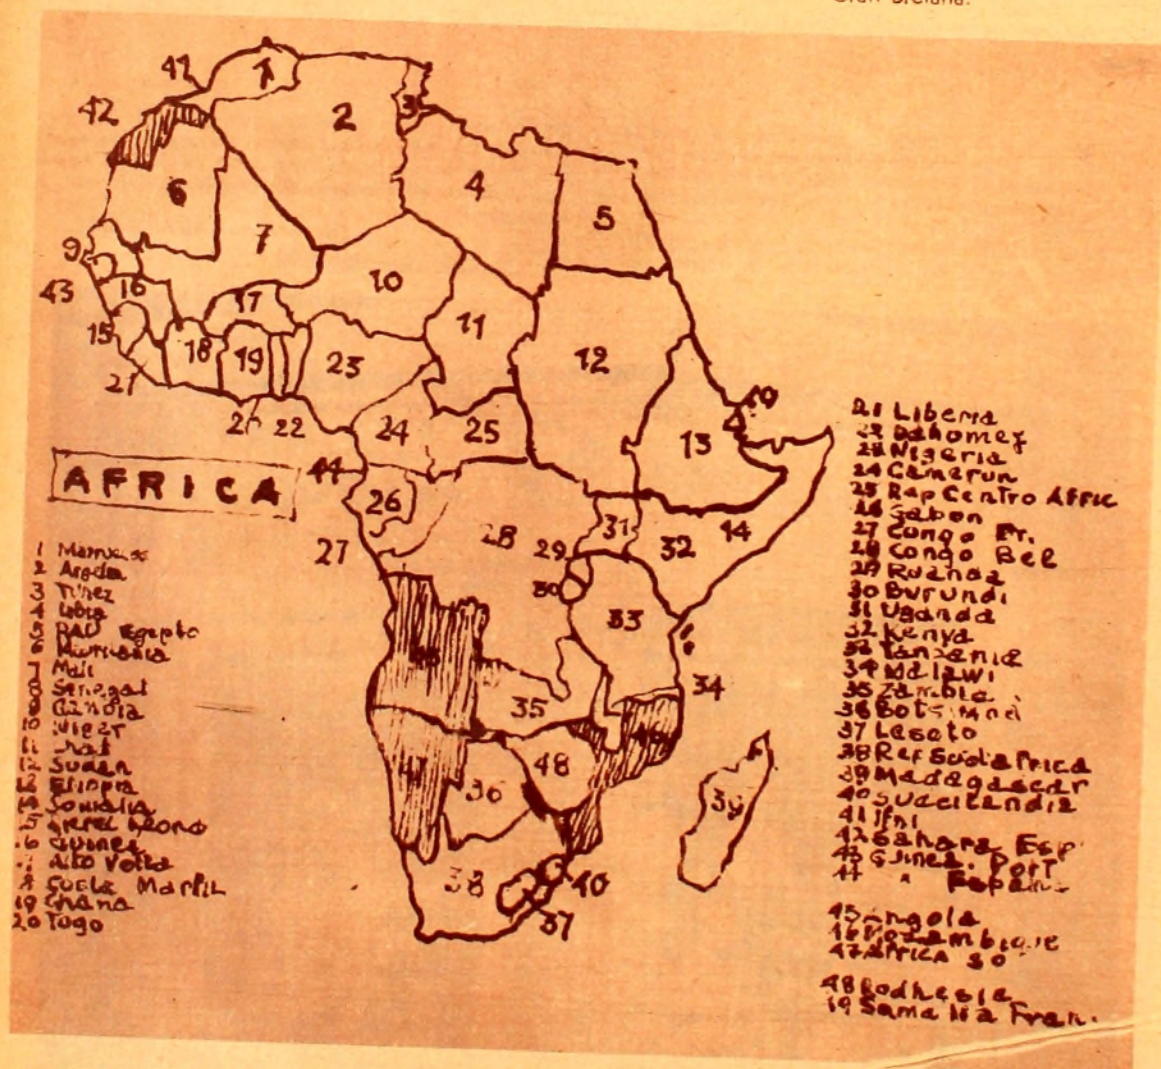 Gran Bretaña.
41
1
42
3
2
6
4
5
7
9
10
43
16
17
11
15
18
19
23
12
21
22
24
25
13
44
AFRICA
26
28
31
14
27
29
32
30
33
34
35
47
48
36
39
38
40
37
1 Marruecos
2
3 Tunez
4 Libia
5 RAU Egepto
6 Mauritania
7 Mali
8 Senegal
9
10 Niger
11
12 Sudan
13 Etiopia
14 Somalia
15
16 Guinea
17 Alto Volta
18 Costa Marfil
19 Ghana
20 Togo
21 Liberia
22 Dahomey
23 Nigeria
24 Camerun
25 Rep Centro Afric
26 Gabon
27 Congo Fr.
28 Congo Bel
29 Ruanda
30 Burundi
31 Uganda
32 Kenya
33 Tanzania
34 Malawi
35 Zambia
36
37 Lesoto
38 Rep Sudafrica
39 Madagascar
40
41 Ifni
42 Sahara Esp
43 Guinea. Port
44 "
45 Angola
46 Mozambique
47 Africa SO
48 Rodhesia
49 Fran.